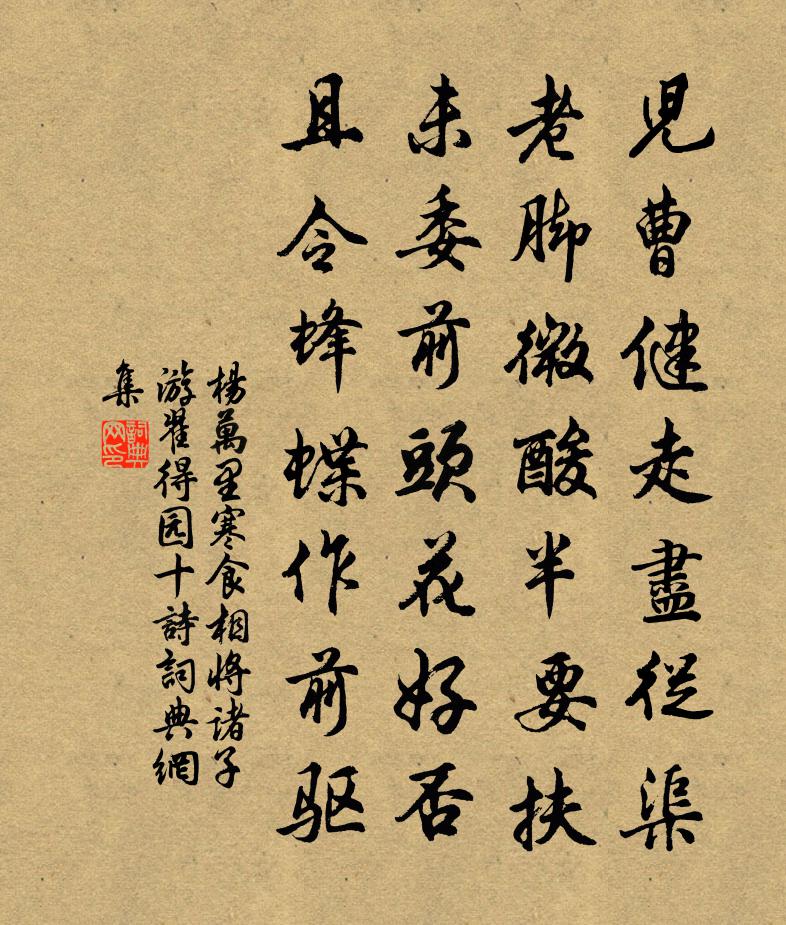 兒曹健走盡從渠
老脚微酸半要扶
未委前頭花好否
且令蜂蝶作前驱
楊萬里寒食相将諸子
游翟得园十詩詞典網
集
詞典網印